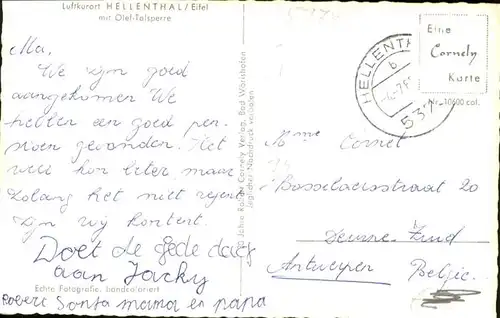 Luftkurort HELLENTHAL/Eifel
mit Olef-Talsperre
Ma,
We zijn goed
aangekomen We
hebben een goed pen
sioen gevonden. Het
weer kon beter maar
zolang het niet regent
zijn wij kontent.
Doet de goede dag
aan Jacky
Echte Fotografie, handcoloriert
Robert Sonta mama en papa
Cornely Verlag, Bad Wörishofen
Jeglicher Nachdruck verboten
HELLENTHAL
b
537
Eine
Cornely
Karte
Nr. 10600 col.
Mme Cornet
Bosselaerstraat 20
Deurne-Zuid
Antwerpen Belgie.